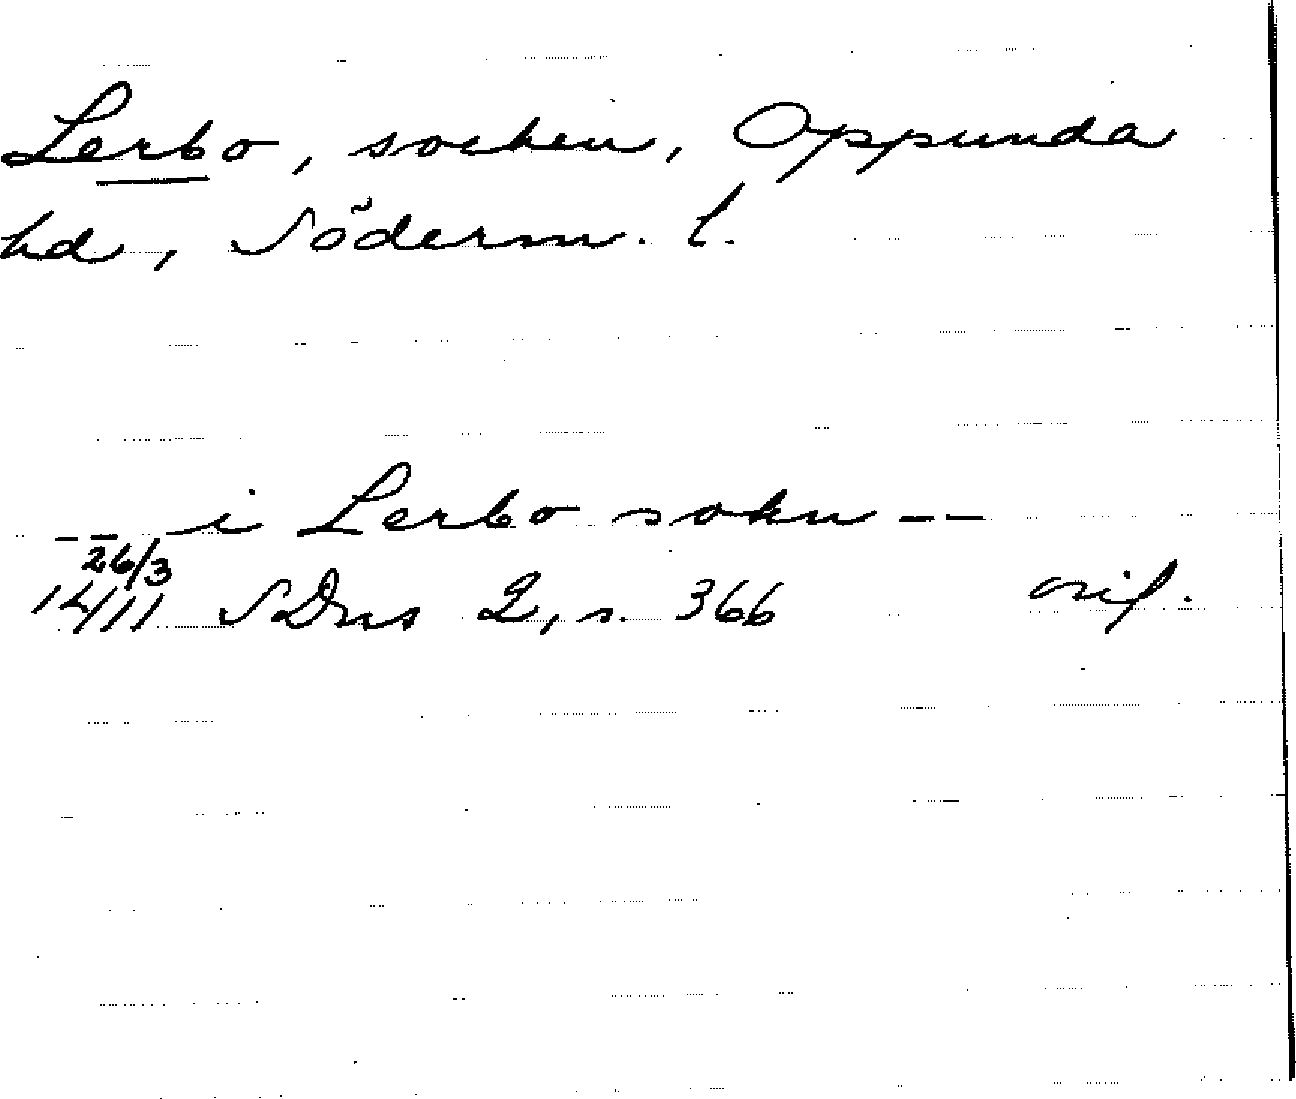 Lerbo, socken, Oppunda
hd, Söderm. l.
-- i Lerbo sokn --
26/3
1411 SDns 2, s. 366 orig.